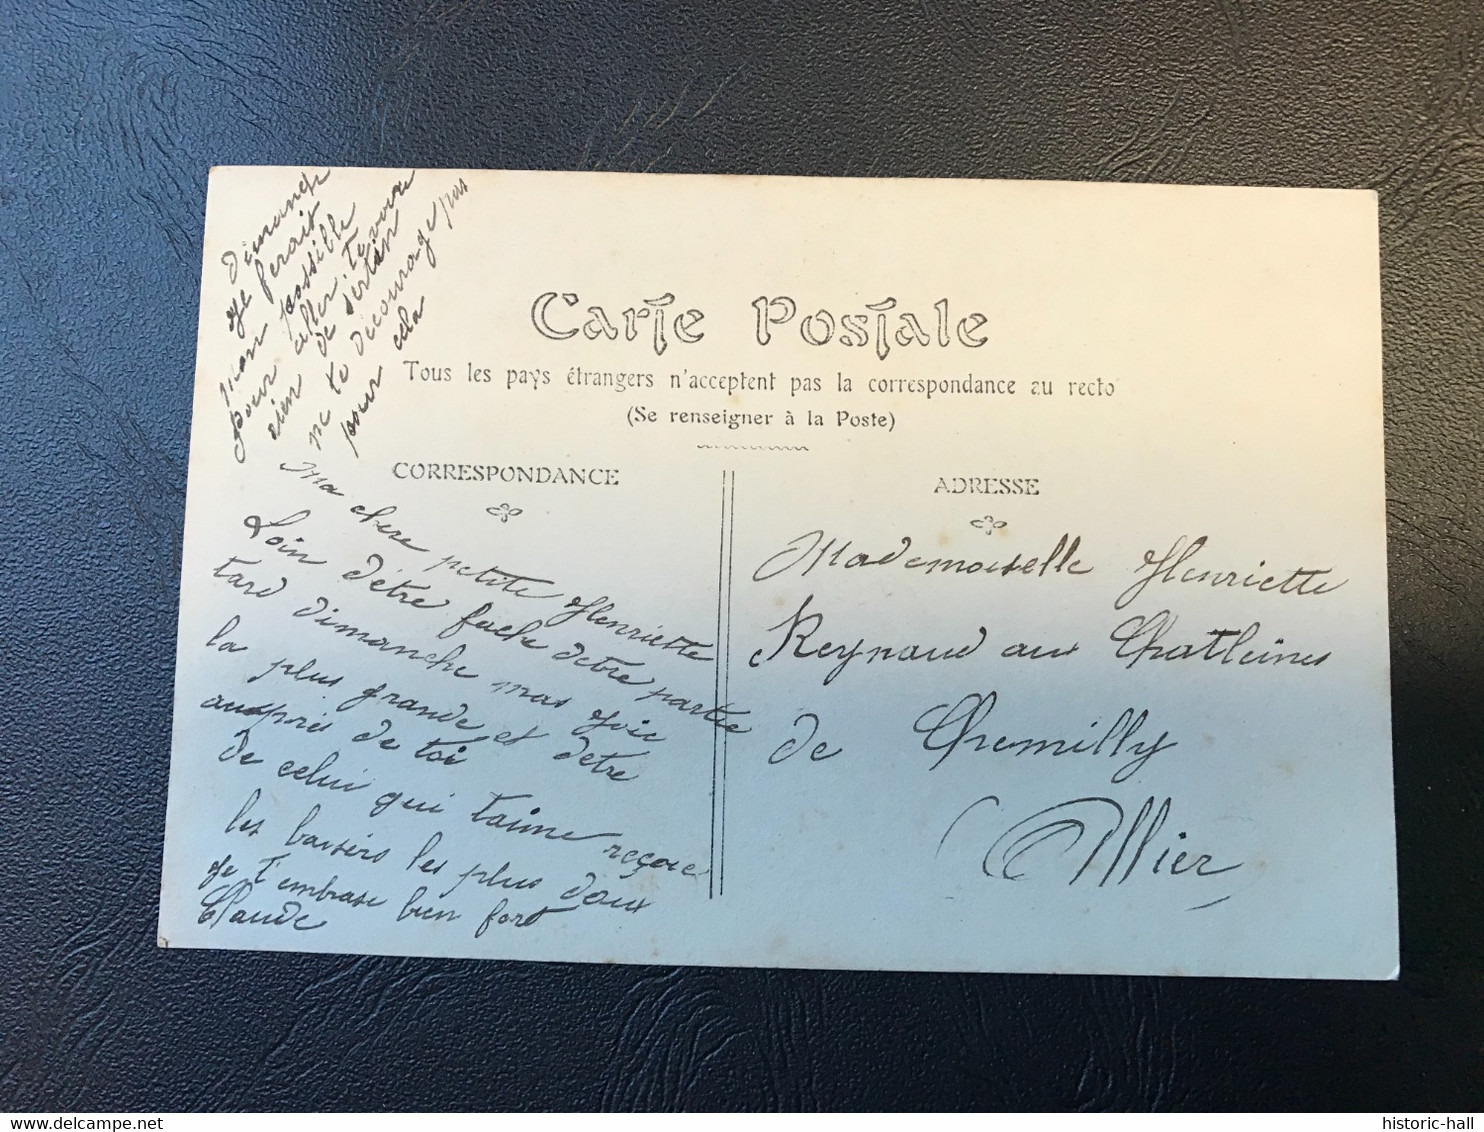 Carte Postale
Tous les pays étrangers n'acceptent pas la correspondance au recto
(Se renseigner à la Poste)
CORRESPONDANCE
Ma chere petite Henriette
Loin d'être fache detre partie
tard dimanche mas joie
la plus grande et detre
auprés de toi
de celui qui taime reçois
les baisers les plus doux
je t embrase bien fort
Claude
dimanche
je ferait
mon possible
pour aller te voir
rien de sertin
ne te décourage pas
pour cela
ADRESSE
Mademoiselle Henriette
Reynaud aux Chatleines
de Chemilly
Allier
historic-hall